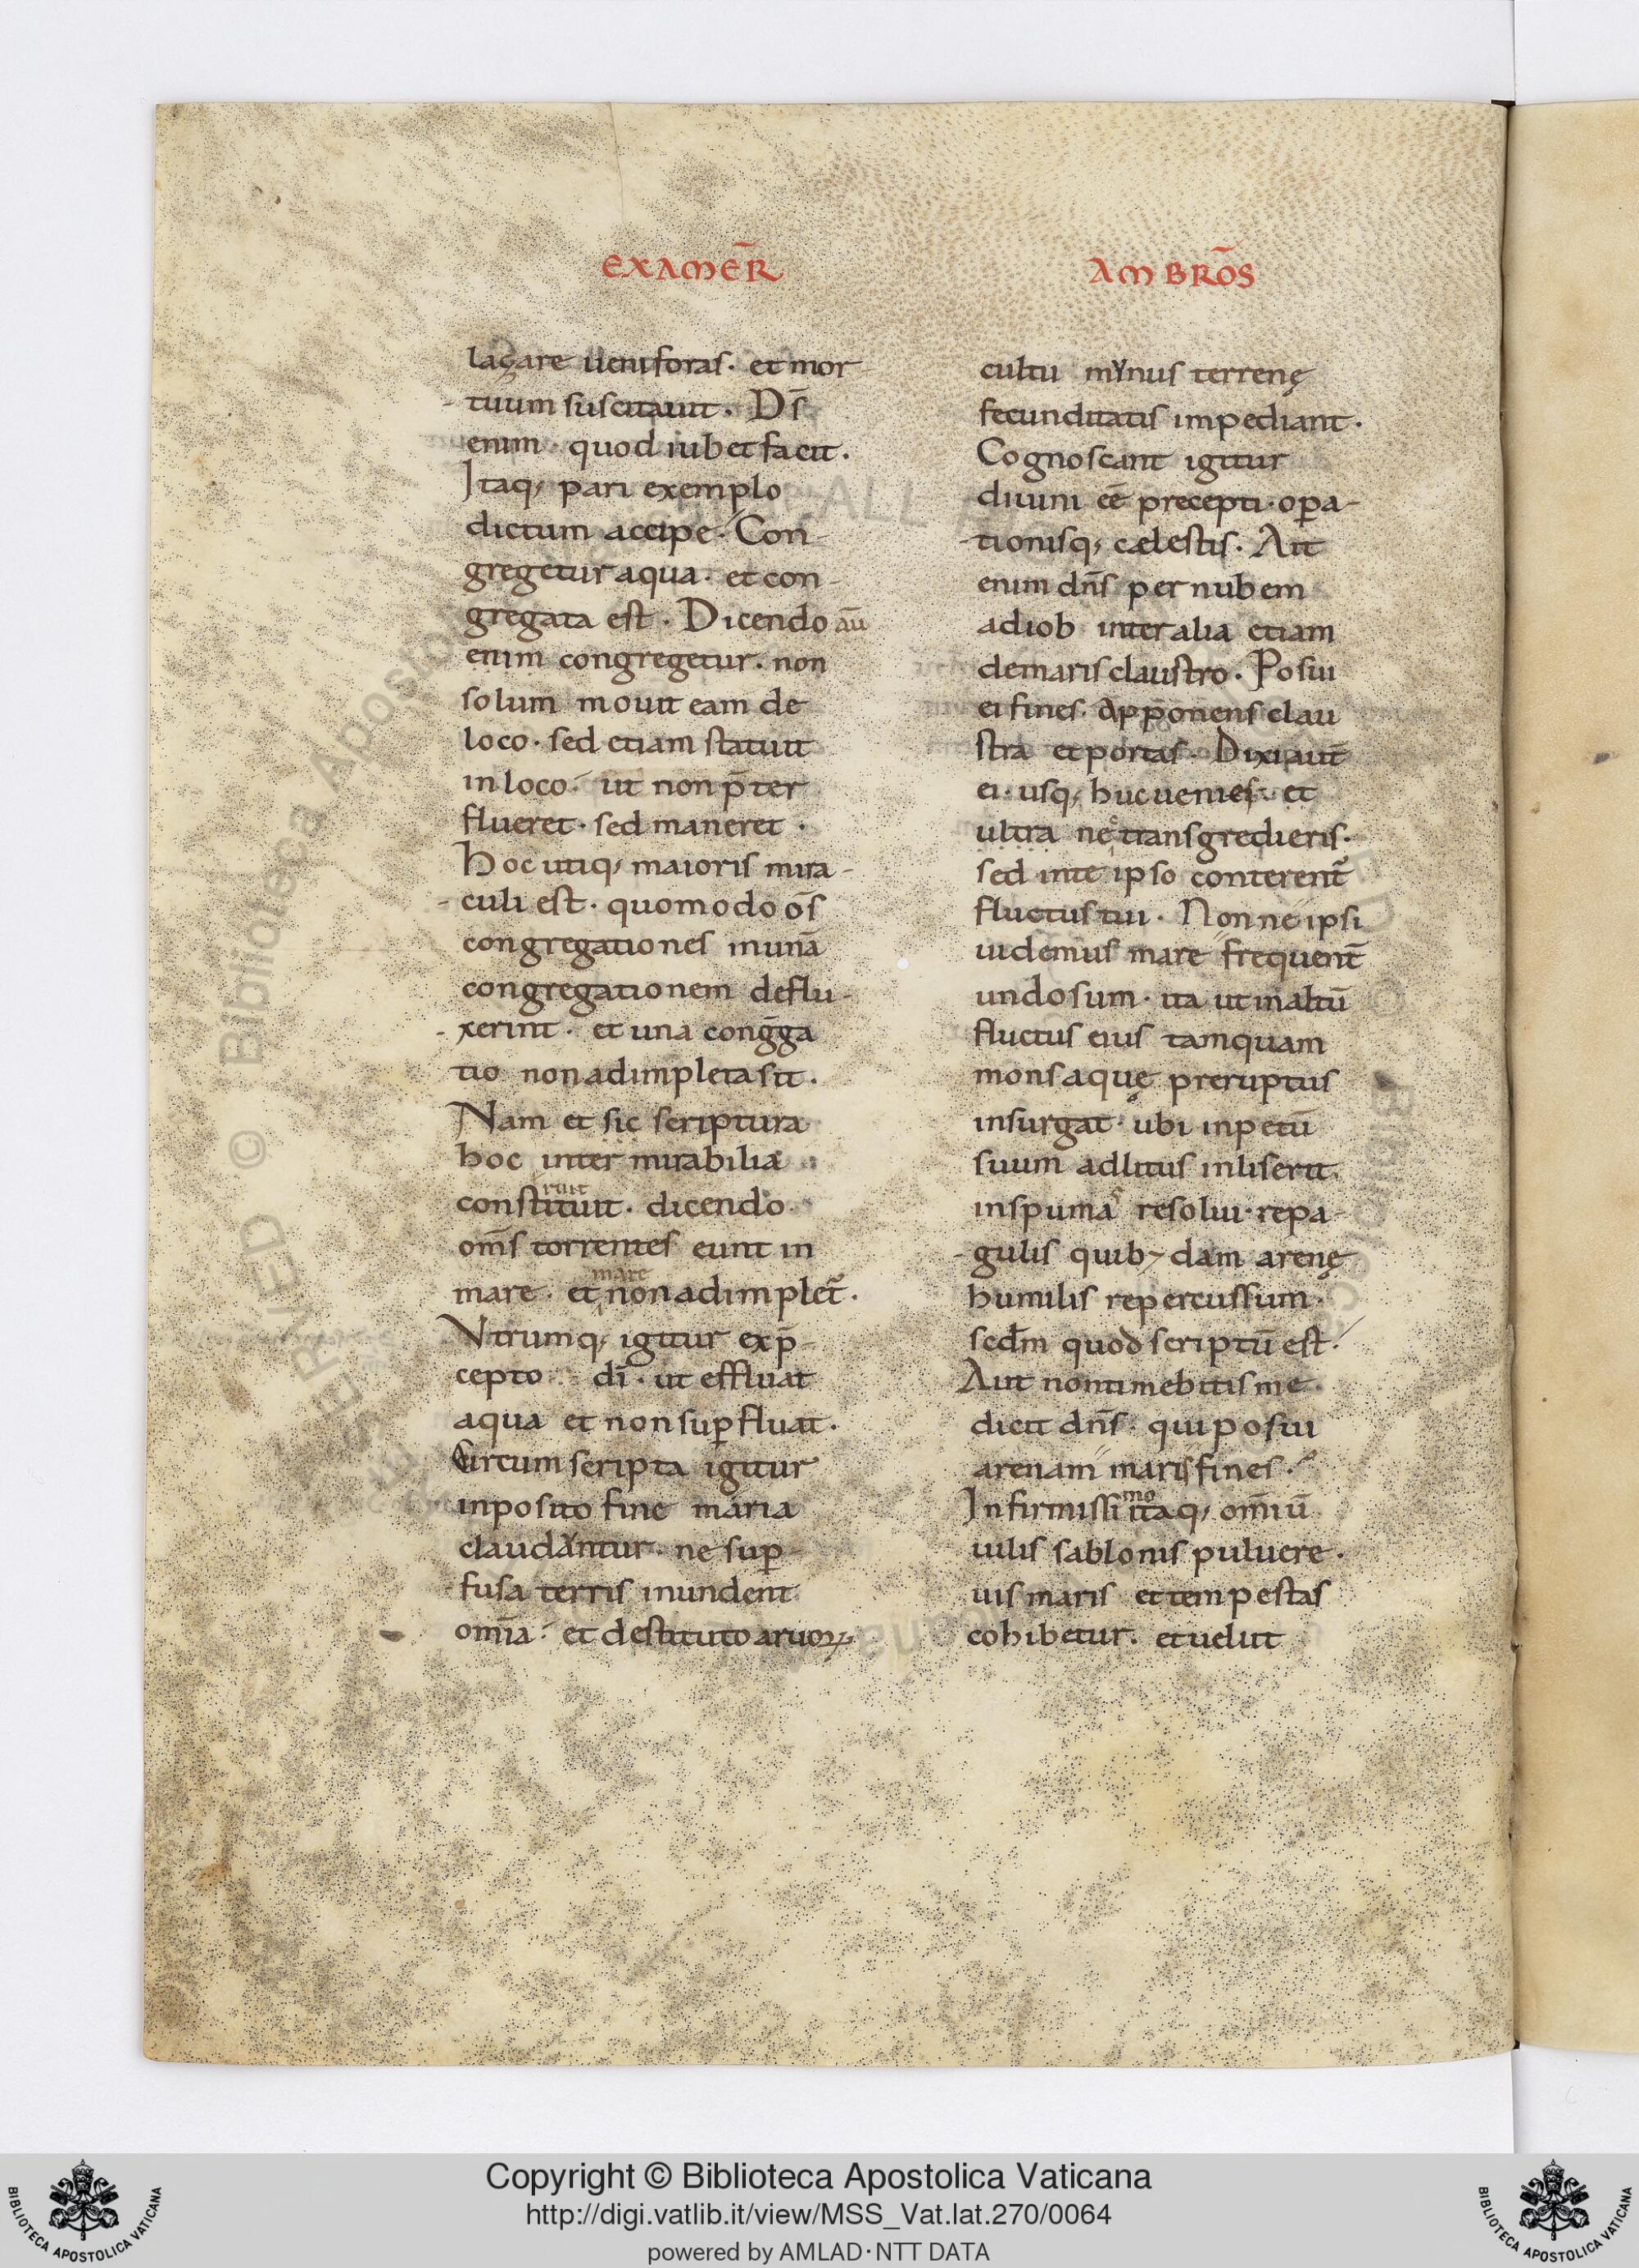 EXAMER̄
laçare ueni foras· et mor
tuum suscitauit· D̄s
enim quod iubet facit·
Itaq; pari exemplo
dictum accipe· Con-
gregetur aqua· et con-
gregata est· Dicendo aū
enim congregetur· non
solum mouit eam de
loco· sed etiam statuit
in loco· ut non p̄ter
flueret· sed maneret·
Hoc utiq; maioris mira-
culi est· quomodo om̄s
congregationes in unā
congregationem deflu-
xerint· et una congḡa
tio non adimpleta sit·
Nam et sic scriptura
hoc inter mirabilia
constituit· dicendo
om̄s torrentes eunt in
mare
mare· et non adimplet᷑·
Vtrumq; igitur ex p̄-
cepto dī· ut effluat
aqua et non sup̱fluat·
Circumscripta igitur
inposito fine maria
claudantur· ne sup̱-
fusa terris inundent
om̄ia· et destituto aruoꝝ
AMBRŌS
cultu mynus terrenę
fecunditatis impediant·
Cognoscant igitur
diuini eē precepti· op̱a-
tionisq; cælestis· Ait
enim dn̄s per nubem
ad iob inter alia etiam
de maris claustro· Posui
ei fines· apponens clau
stra et portas· Dixi aut̄
ei· usq; huc uenies· et
ultra ne transgredieris·
sed in te ipso conterent᷑
fluctus tui· Nonne ipsi
uidemus mare frequent̄
undosum· ita ut in altū
fluctus eius tamquam
mons aquę preruptus
insurgat· ubi inpetū
suum ad litus inliserit
in spumas resolui· repa-
gulis quib; dam arenę
humilis repercussum·
sed̄m quod scriptū est·
Aut non timebitis me
dicit dn̄s· qui posui
arenam maris fines·
mo
Infirmissi itaq; om̄iū
uilis sablonis puluere·
uis maris et tempestas
cohibetur· et uelut
Copyright © Biblioteca Apostolica Vaticana
http://digi.vatlib.it/view/MSS_Vat.lat.270/0064
powered by AMLAD·NTT DATA
BIBLIOTECA APOSTOLICA VATICANA
BIBLIOTECA APOSTOLICA VATICANA